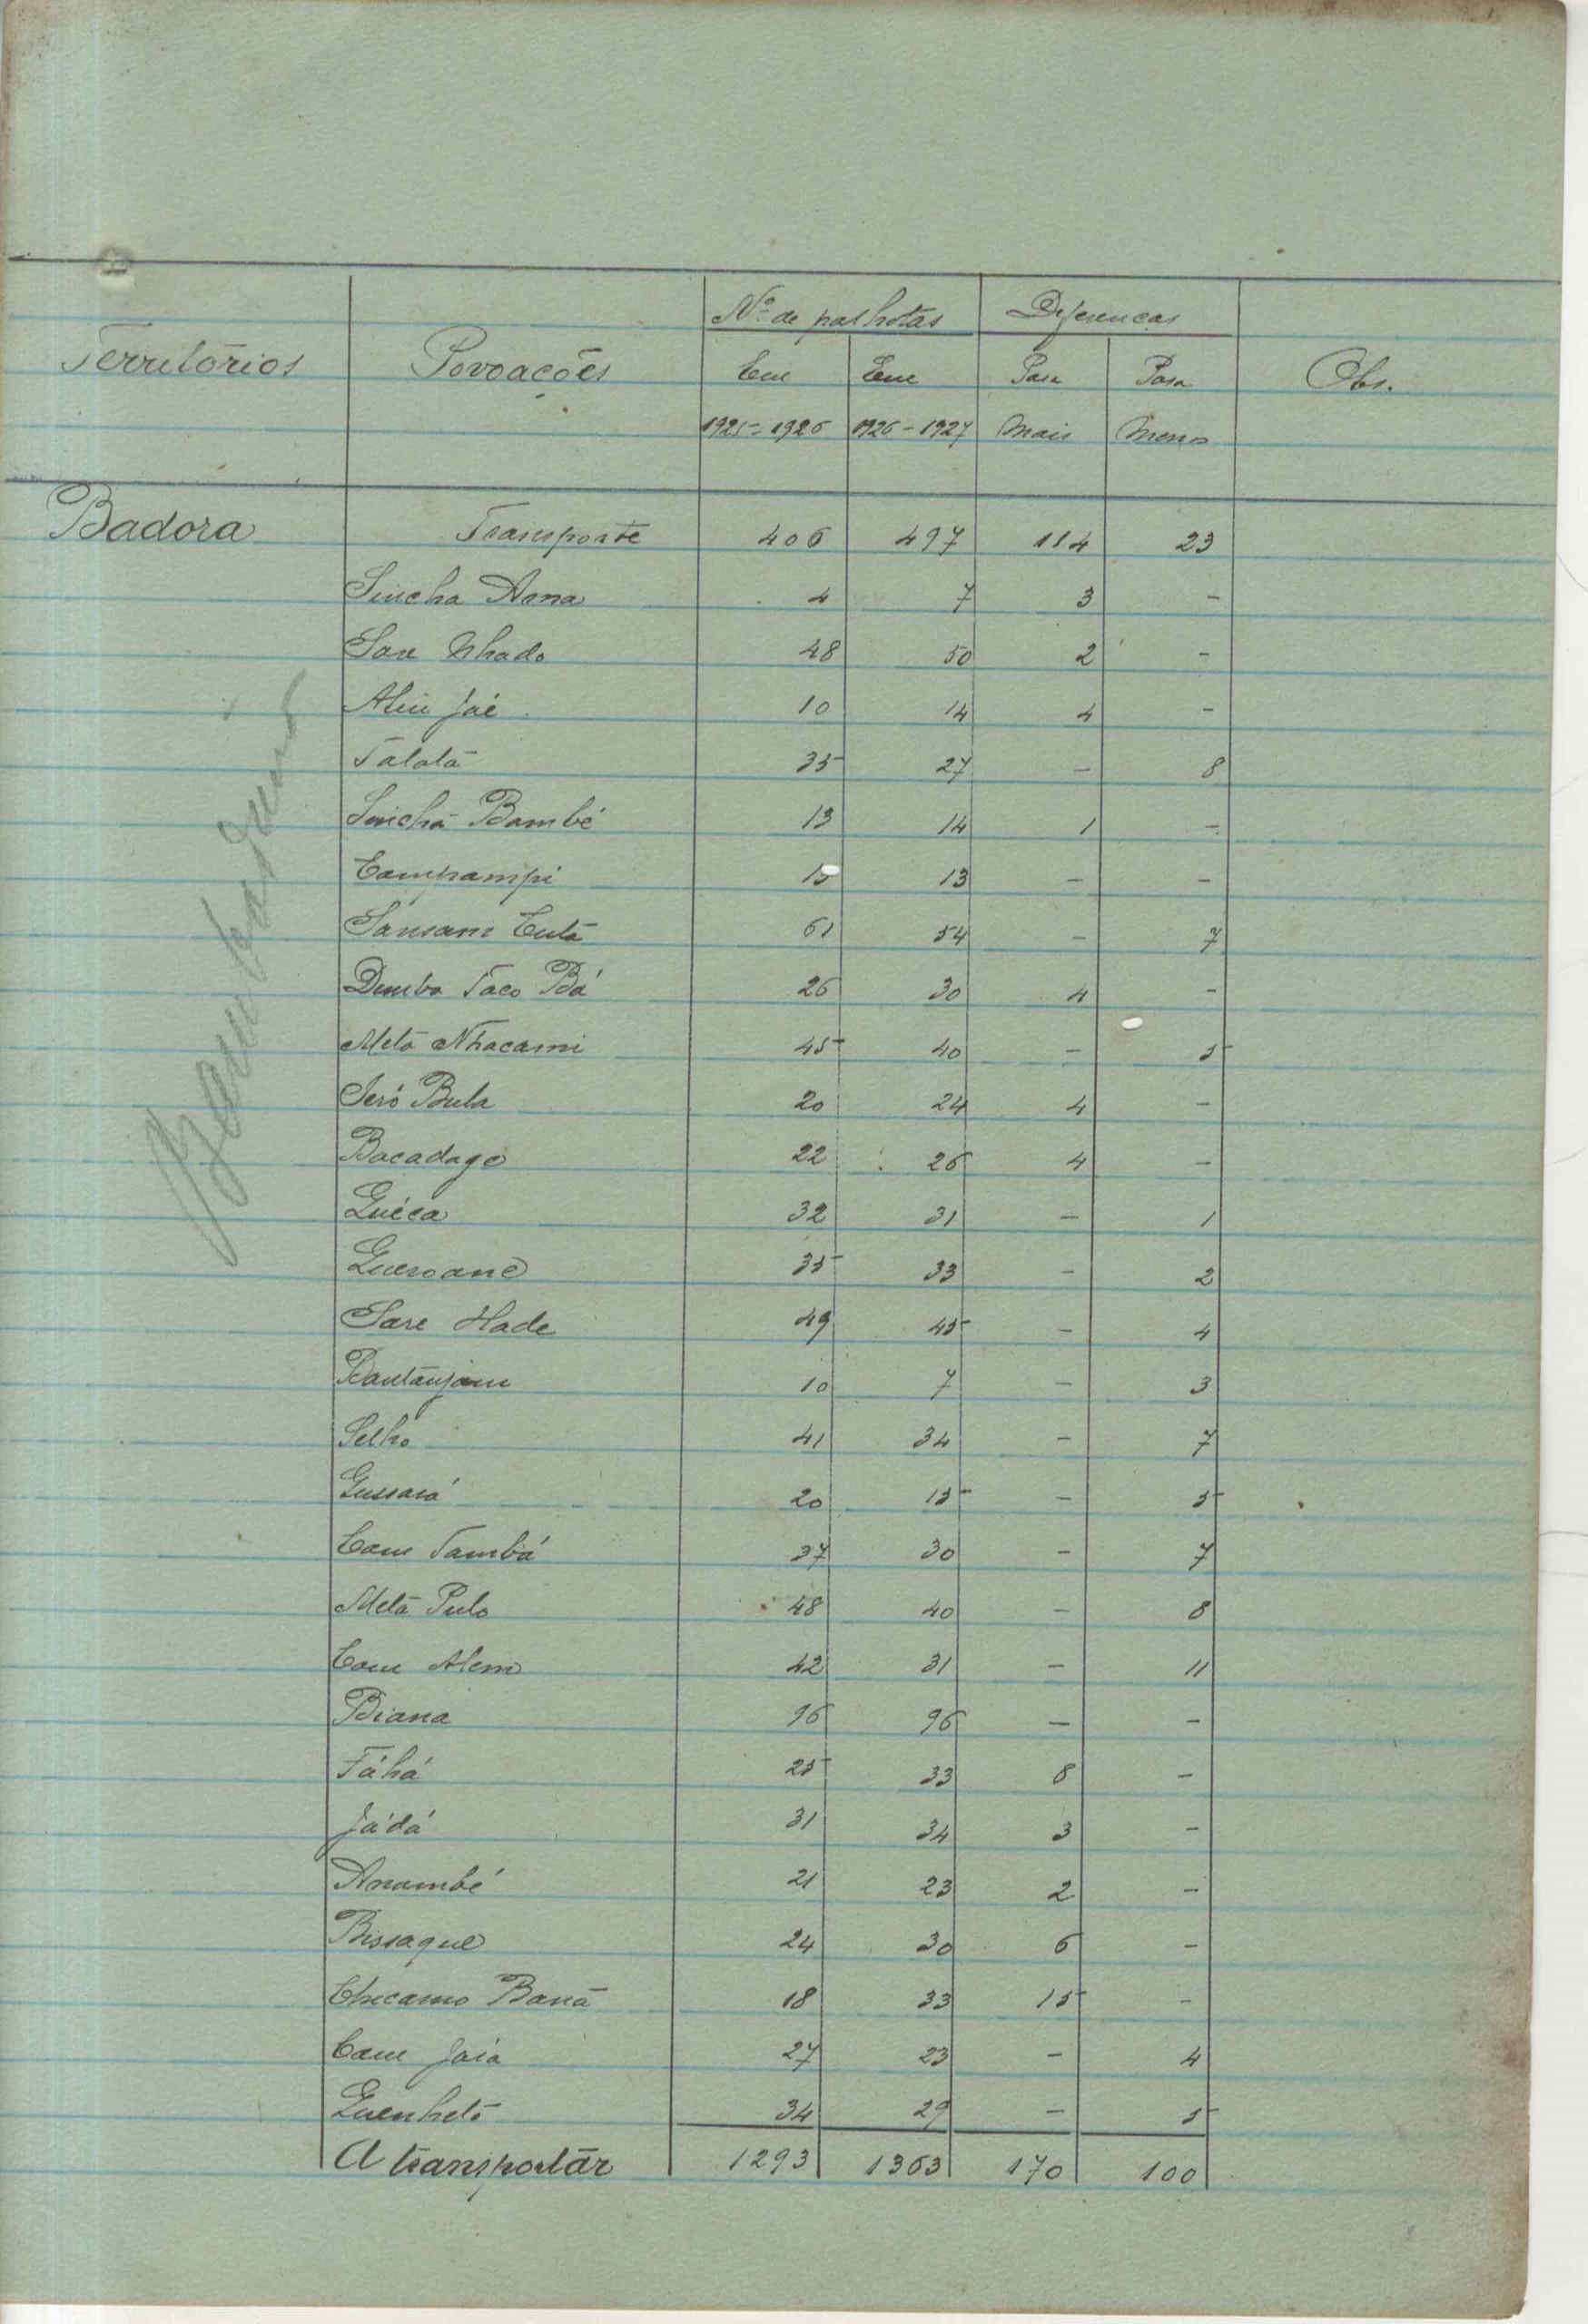 Nº de palhotas Diferenças
Territórios Povoações Em Em Para Para Obs.
1925-1926 1926-1927 Mais Menos
Badora Transporte 406 497 114 23
Sincha Arna 4 7 3 -
Sare Nhado 48 50 2 -
Aliu Jaé 10 14 4 -
Talatá 35 27 - 8
Sinchã Bambé 13 14 1 -
Campampi 13 - -
Sansam Cutá 61 54 - 7
Demba Taco Bá 26 30 4 -
Metá Nhacami 45 40 - 5
Seró Bula 20 24 4 -
Bacadage 22 26 4 -
Guéca 32 31 - 1
Gueroane 35 33 - 2
Sare Hade 49 45 - 4
Bantanjam 10 7 - 3
Selho 41 34 - 7
Gussará 20 15 - 5
Cam Tambá 37 30 - 7
Metá Pulo 48 40 - 8
Cam Alem 42 31 - 11
Biana 96 96 - -
Fáhá 25 33 8 -
Jádá 31 34 3 -
Anambé 21 23 2 -
Bissaque 24 30 6 -
Checamo Banã 18 33 15 -
Cam Jaia 27 23 - 4
Guenhetó 34 29 - 5
A transportar 1293 1363 170 100